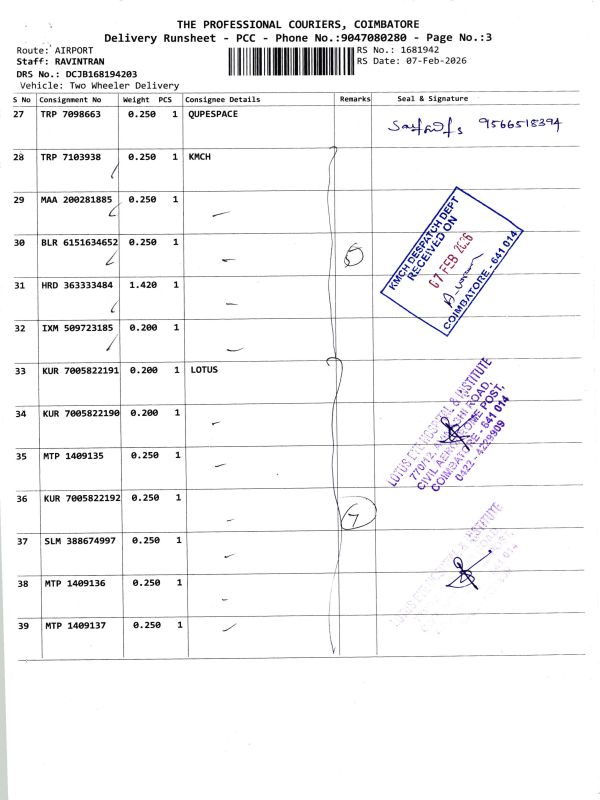 THE PROFESSIONAL COURIERS, COIMBATORE
Delivery Runsheet - PCC - Phone No.:9047080280 - Page No.:3
Route: AIRPORT RS No.: 1681942
Staff: RAVINTRAN RS Date: 07-Feb-2026
DRS No.: DCJB168194203
Vehicle: Two Wheeler Delivery
S No Consignment No Weight PCS Consignee Details Remarks Seal & Signature
27 TRP 7098663 0.250 1 QUPESPACE 9566518394
28 TRP 7103938 0.250 1 KMCH
29 MAA 200281885 0.250 1
30 BLR 6151634652 0.250 1
31 HRD 363333484 1.420 1
32 IXM 509723185 0.200 1
KMCH DESPATCH DEPT
RECEIVED ON
07 FEB 2026
COIMBATORE - 641 014
33 KUR 7005822191 0.200 1 LOTUS
34 KUR 7005822190 0.200 1
35 MTP 1409135 0.250 1
36 KUR 7005822192 0.250 1 7
37 SLM 388674997 0.250 1
38 MTP 1409136 0.250 1
39 MTP 1409137 0.250 1
LOTUS EYE HOSPITAL & INSTITUTE
770/12, AVINASHI ROAD,
CIVIL AERODROME POST,
COIMBATORE - 641 014
0422 - 4229909
LOTUS EYE HOSPITAL & INSTITUTE